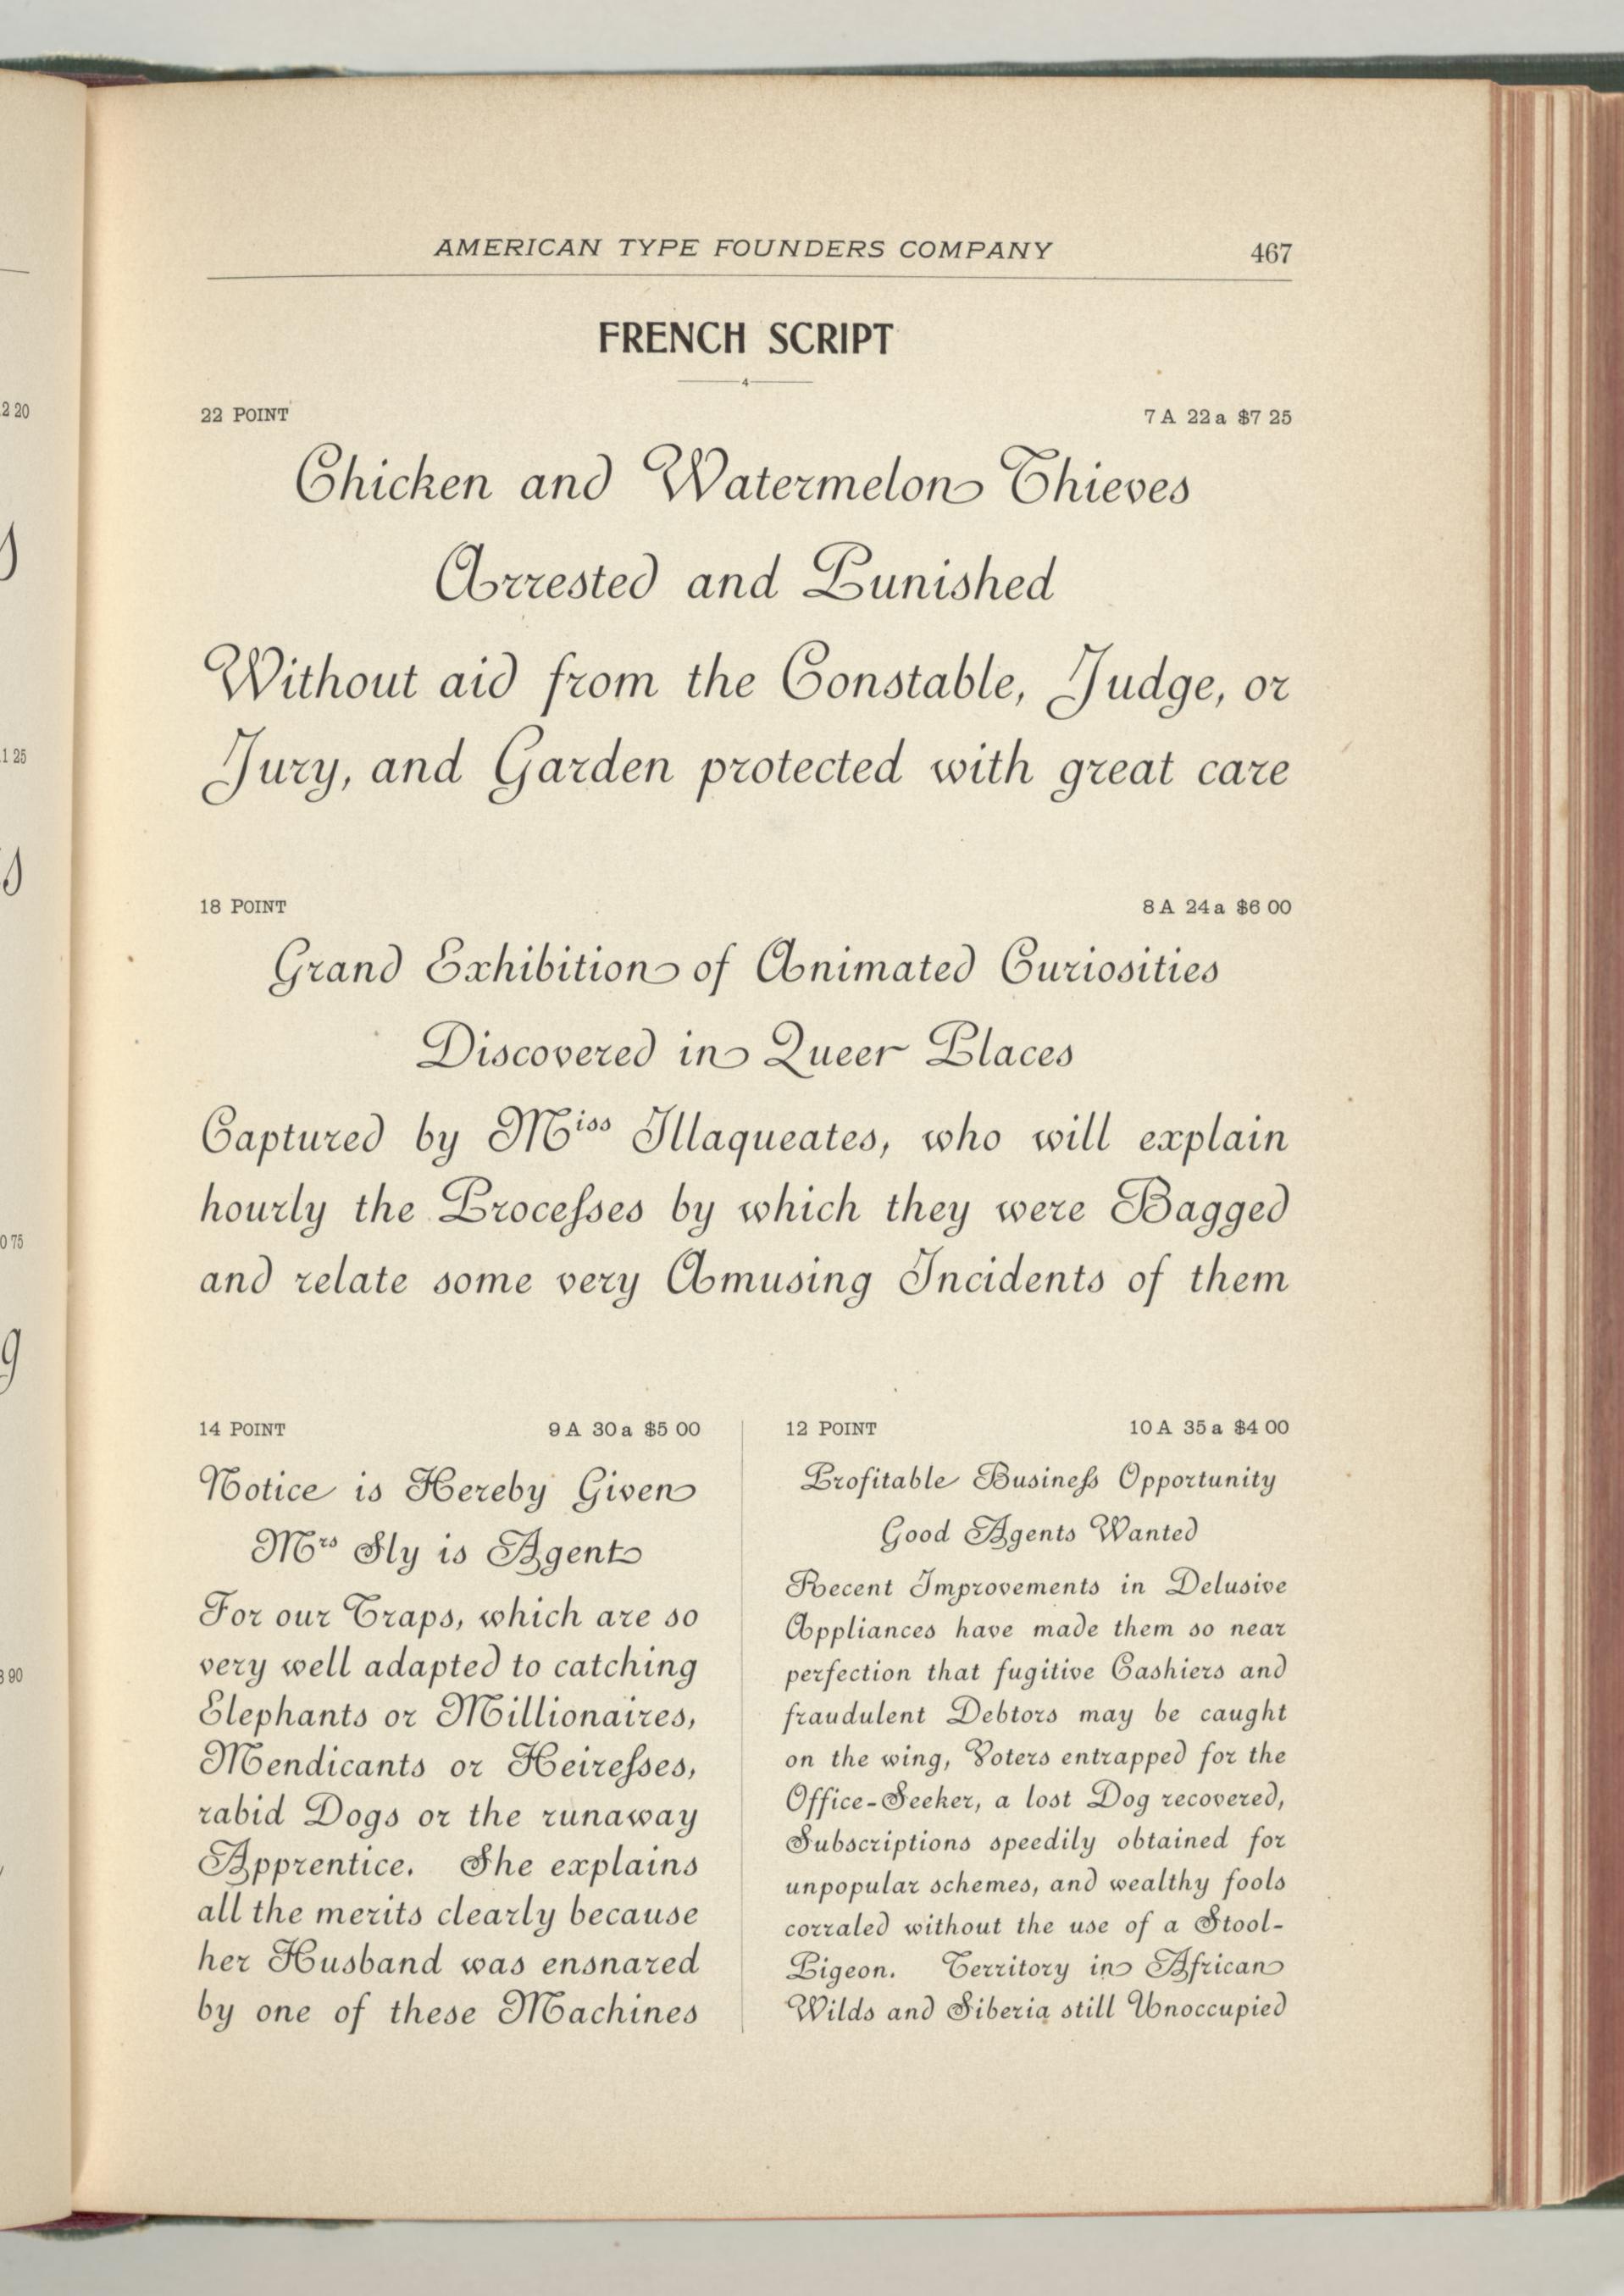 AMERICAN TYPE FOUNDERS COMPANY 467
FRENCH SCRIPT
22 POINT 7 A 22 a $7 25
Chicken and Watermelon Thieves
Arrested and Punished
Without aid from the Constable, Judge, or
Jury, and Garden protected with great care
18 POINT 8 A 24 a $6 00
Grand Exhibition of Animated Curiosities
Discovered in Queer Places
Captured by Miss Illaqueates, who will explain
hourly the Proceſses by which they were Bagged
and relate some very Amusing Incidents of them
14 POINT 9 A 30 a $5 00
Notice is Hereby Given
Mrs Sly is Agent
For our Traps, which are so
very well adapted to catching
Elephants or Millionaires,
Mendicants or Heireſses,
rabid Dogs or the runaway
Apprentice. She explains
all the merits clearly because
her Husband was ensnared
by one of these Machines
12 POINT 10 A 35 a $4 00
Profitable Busineſs Opportunity
Good Agents Wanted
Recent Improvements in Delusive
Appliances have made them so near
perfection that fugitive Cashiers and
fraudulent Debtors may be caught
on the wing, Voters entrapped for the
Office-Seeker, a lost Dog recovered,
Subscriptions speedily obtained for
unpopular schemes, and wealthy fools
corraled without the use of a Stool-
Pigeon. Territory in African
Wilds and Siberia still Unoccupied